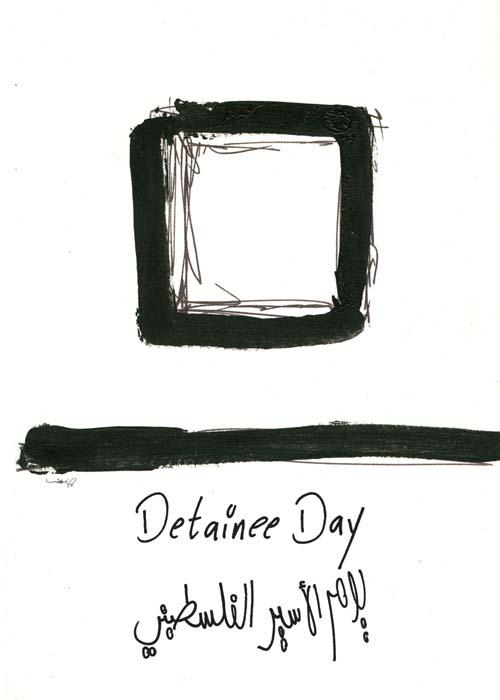 Detainee Day
يوم الأسير الفلسطيني